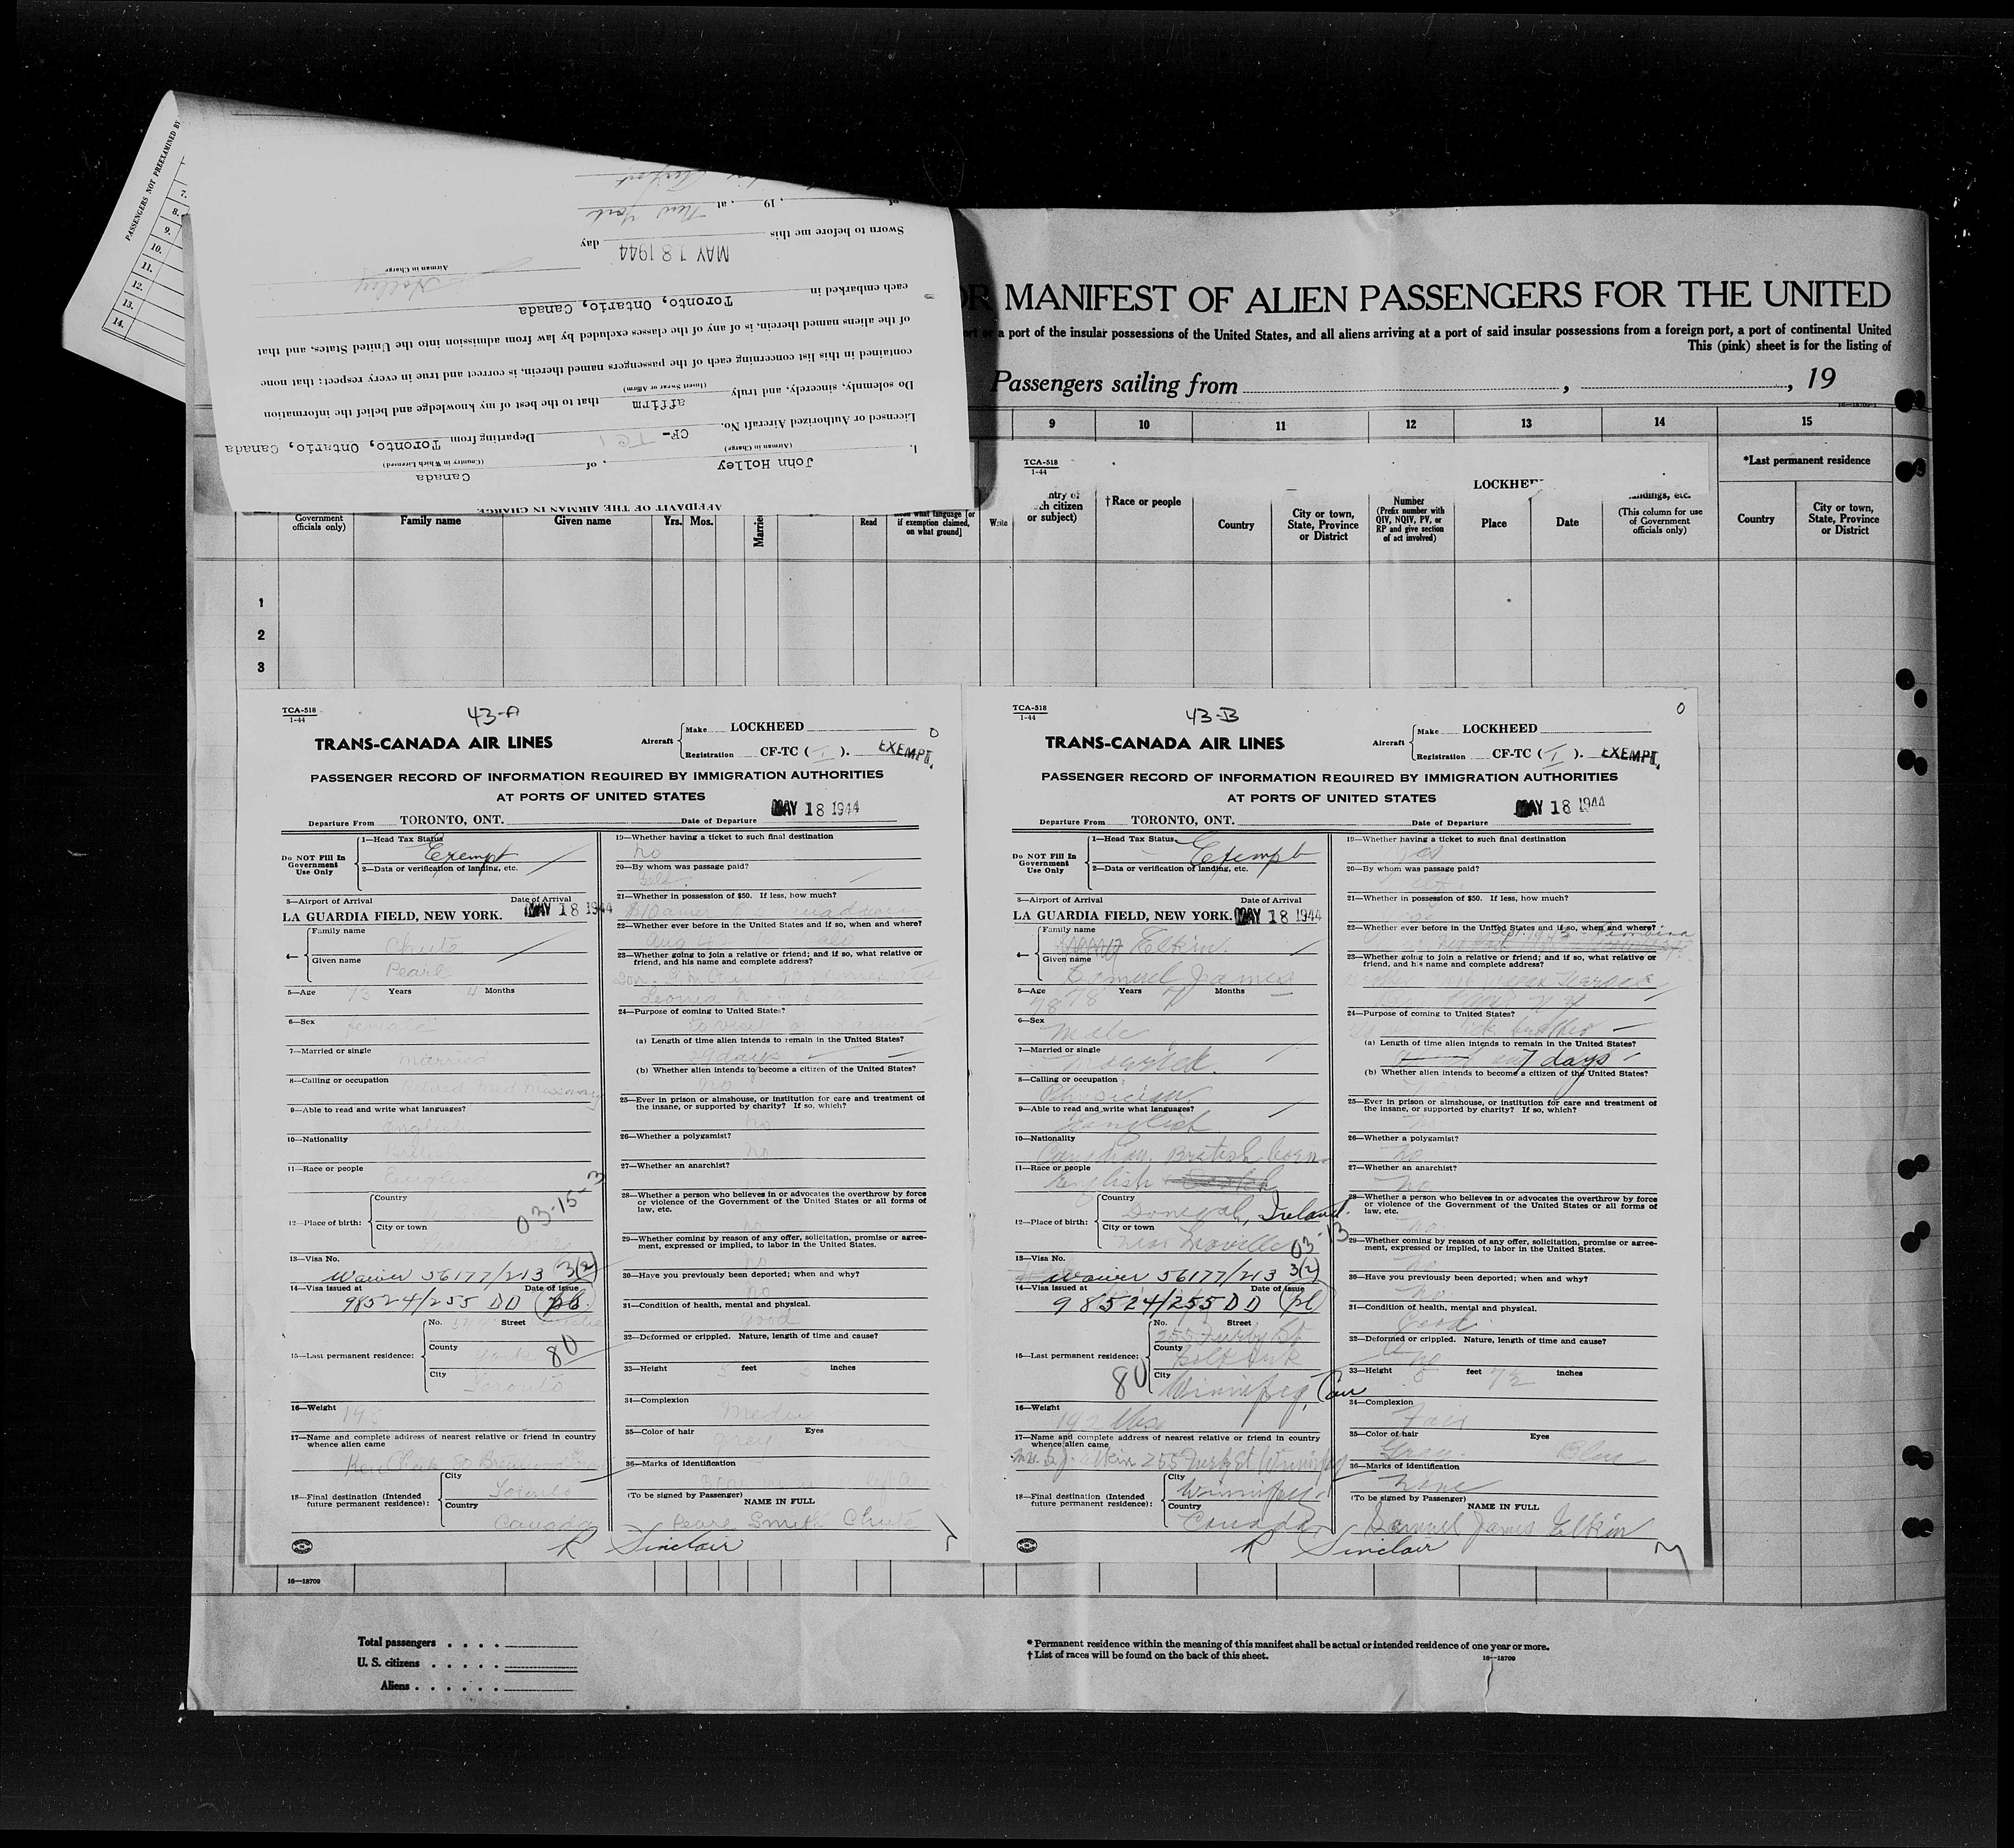 PASSENGERS NOT PREEXAMINED BY
7.
8.
9.
10.
11.
12.
13.
14.
AFFIDAVIT OF THE AIRMAN IN CHARGE
I, John Holley, of Canada
(Airman in Charge) (Country in Which Licensed)
Licensed or Authorized Aircraft No. CF-TC I Departing from Toronto, Ontario, Canada
Do solemnly, sincerely, and truly affirm that to the best of my knowledge and belief the information
(Insert Swear or Affirm)
contained in this list concerning each of the passengers named therein, is correct and true in every respect; that none
of the aliens named therein, is of any of the classes excluded by law from admission into the United States, and that
each embarked in Toronto, Ontario, Canada
Holley
Airman in Charge
Sworn to before me this MAY 18 1944 day
of , 19 , at New York
Airport
OR MANIFEST OF ALIEN PASSENGERS FOR THE UNITED
a port of the insular possessions of the United States, and all aliens arriving at a port of said insular possessions from a foreign port, a port of continental United
This (pink) sheet is for the listing of
Passengers sailing from , , 19
9 10 11 12 13 14 15
TCA-518
1-44
LOCKHEE
*Last permanent residence
Government officials only)
Family name
Given name
Yrs.
Mos.
Married
Read
what language [or if exemption claimed, on what ground]
Write
citizen or subject)
†Race or people
Country
City or town, State, Province or District
Number (Prefix number with QIV, NQIV, PV, or RP and give section of act involved)
Place
Date
landings, etc. (This column for use of Government officials only)
Country
City or town, State, Province or District
1
2
3
TCA-518
1-44
43-A
TRANS-CANADA AIR LINES
Aircraft Make LOCKHEED
Registration CF-TC ( I ). EXEMPT
PASSENGER RECORD OF INFORMATION REQUIRED BY IMMIGRATION AUTHORITIES
AT PORTS OF UNITED STATES
Departure From TORONTO, ONT. Date of Departure MAY 18 1944
Do NOT Fill In Government Use Only
1—Head Tax Status
Exempt
2—Data or verification of landing, etc.
3—Airport of Arrival Date of Arrival
LA GUARDIA FIELD, NEW YORK. MAY 18 1944
4— Family name
Chute
Given name
Pearl
5—Age 73 Years 4 Months
6—Sex
female
7—Married or single
Married
8—Calling or occupation
Retired Med Missionary
9—Able to read and write what languages?
English
10—Nationality
British
11—Race or people
English
12—Place of birth: Country
City or town
03-15-3
13—Visa No.
Waiver 56177/213 3(2)
14—Visa issued at Date of issue
98524/255 DD pb.
15—Last permanent residence: No. Street
County York
City Toronto
80
16—Weight
17—Name and complete address of nearest relative or friend in country whence alien came
18—Final destination (Intended future permanent residence): City Toronto
Country Canada
19—Whether having a ticket to such final destination
no
20—By whom was passage paid?
Self
21—Whether in possession of $50. If less, how much?
22—Whether ever before in the United States and if so, when and where?
23—Whether going to join a relative or friend; and if so, what relative or friend, and his name and complete address?
Leonia
24—Purpose of coming to United States?
to visit
(a) Length of time alien intends to remain in the United States?
29 days
(b) Whether alien intends to become a citizen of the United States?
no
25—Ever in prison or almshouse, or institution for care and treatment of the insane, or supported by charity? If so, which?
no
26—Whether a polygamist?
no
27—Whether an anarchist?
28—Whether a person who believes in or advocates the overthrow by force or violence of the Government of the United States or all forms of law, etc.
no
29—Whether coming by reason of any offer, solicitation, promise or agreement, expressed or implied, to labor in the United States.
no
30—Have you previously been deported; when and why?
no
31—Condition of health, mental and physical.
Good
32—Deformed or crippled. Nature, length of time and cause?
33—Height 5 feet inches
34—Complexion
35—Color of hair Eyes
grey
36—Marks of identification
(To be signed by Passenger) NAME IN FULL
Pearl Smith Chute
R Sinclair
TCA-518
1-44
43-B
TRANS-CANADA AIR LINES
Aircraft Make LOCKHEED
Registration CF-TC ( I ). EXEMPT
PASSENGER RECORD OF INFORMATION REQUIRED BY IMMIGRATION AUTHORITIES
AT PORTS OF UNITED STATES
Departure From TORONTO, ONT. Date of Departure MAY 18 1944
Do NOT Fill In Government Use Only
1—Head Tax Status
Exempt
2—Data or verification of landing, etc.
3—Airport of Arrival Date of Arrival
LA GUARDIA FIELD, NEW YORK. MAY 18 1944
4— Family name
Elkin
Given name
Samuel James
5—Age 78 Years 7 Months
6—Sex
Male
7—Married or single
Married.
8—Calling or occupation
Physician
9—Able to read and write what languages?
English
10—Nationality
Canadian, British born
11—Race or people
English
12—Place of birth: Country
Donegal, Ireland.
City or town
near Moville
03-13
13—Visa No.
Waiver 56177/213 3(2)
14—Visa issued at Date of issue
98524/255 DD pl
15—Last permanent residence: No. Street
255 Furby St
County
City
Winnipeg, Can
80
16—Weight
192 lbs
17—Name and complete address of nearest relative or friend in country whence alien came
Mrs. S. J. Elkin 255 Furby St Winnipeg
18—Final destination (Intended future permanent residence): City Winnipeg
Country Canada
19—Whether having a ticket to such final destination
20—By whom was passage paid?
21—Whether in possession of $50. If less, how much?
22—Whether ever before in the United States and if so, when and where?
Pembina
23—Whether going to join a relative or friend; and if so, what relative or friend, and his name and complete address?
24—Purpose of coming to United States?
(a) Length of time alien intends to remain in the United States?
7 days
(b) Whether alien intends to become a citizen of the United States?
25—Ever in prison or almshouse, or institution for care and treatment of the insane, or supported by charity? If so, which?
26—Whether a polygamist?
no
27—Whether an anarchist?
no
28—Whether a person who believes in or advocates the overthrow by force or violence of the Government of the United States or all forms of law, etc.
no
29—Whether coming by reason of any offer, solicitation, promise or agreement, expressed or implied, to labor in the United States.
30—Have you previously been deported; when and why?
no
31—Condition of health, mental and physical.
Good
32—Deformed or crippled. Nature, length of time and cause?
no
33—Height feet inches
34—Complexion
Fair
35—Color of hair Eyes
Grey Blue
36—Marks of identification
None
(To be signed by Passenger) NAME IN FULL
Samuel James Elkin
R Sinclair
16—18709
Total passengers . . . .
U. S. citizens . . . . .
Aliens . . . . . .
* Permanent residence within the meaning of this manifest shall be actual or intended residence of one year or more.
† List of races will be found on the back of this sheet.
16—18709